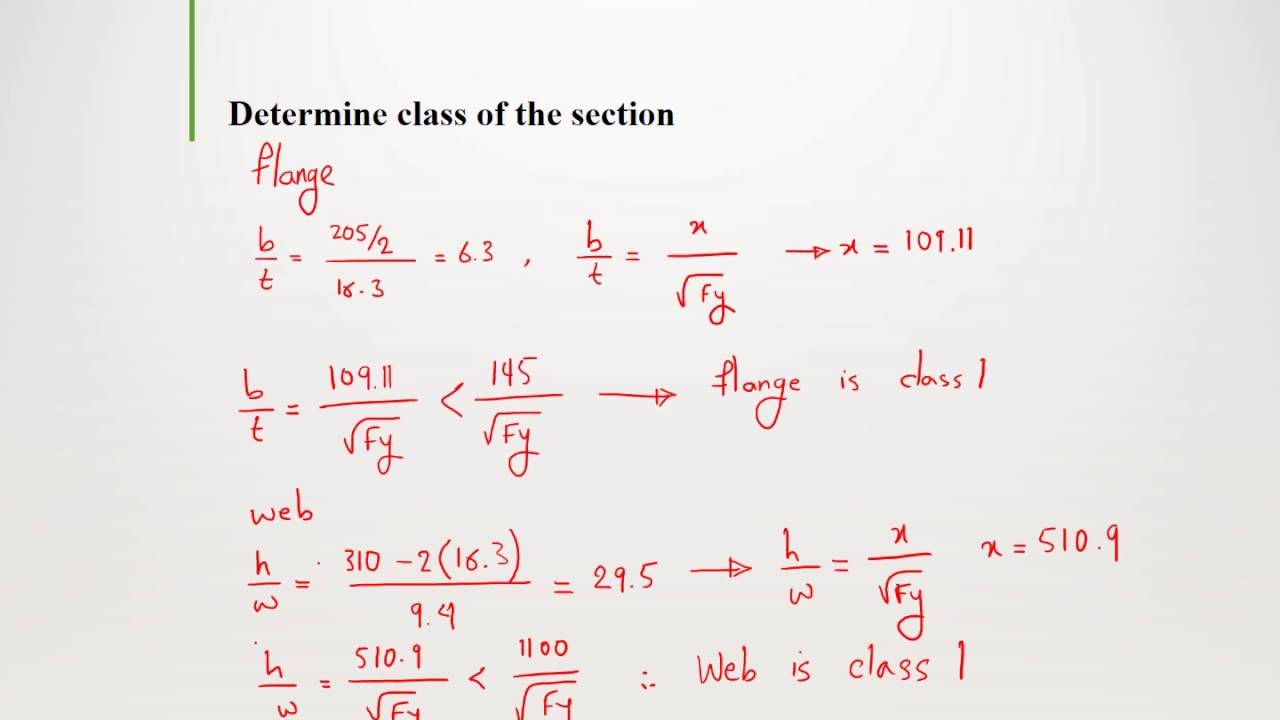 Determine class of the section
flange
b/t = (205/2)/16.3 = 6.3 , b/t = x/√Fy → x = 109.11
b/t = 109.11/√Fy < 145/√Fy → flange is class 1
web
h/w = (310 - 2(16.3))/9.4 = 29.5 → h/w = x/√Fy x = 510.9
h/w = 510.9/√Fy < 1100/√Fy ∴ Web is class 1